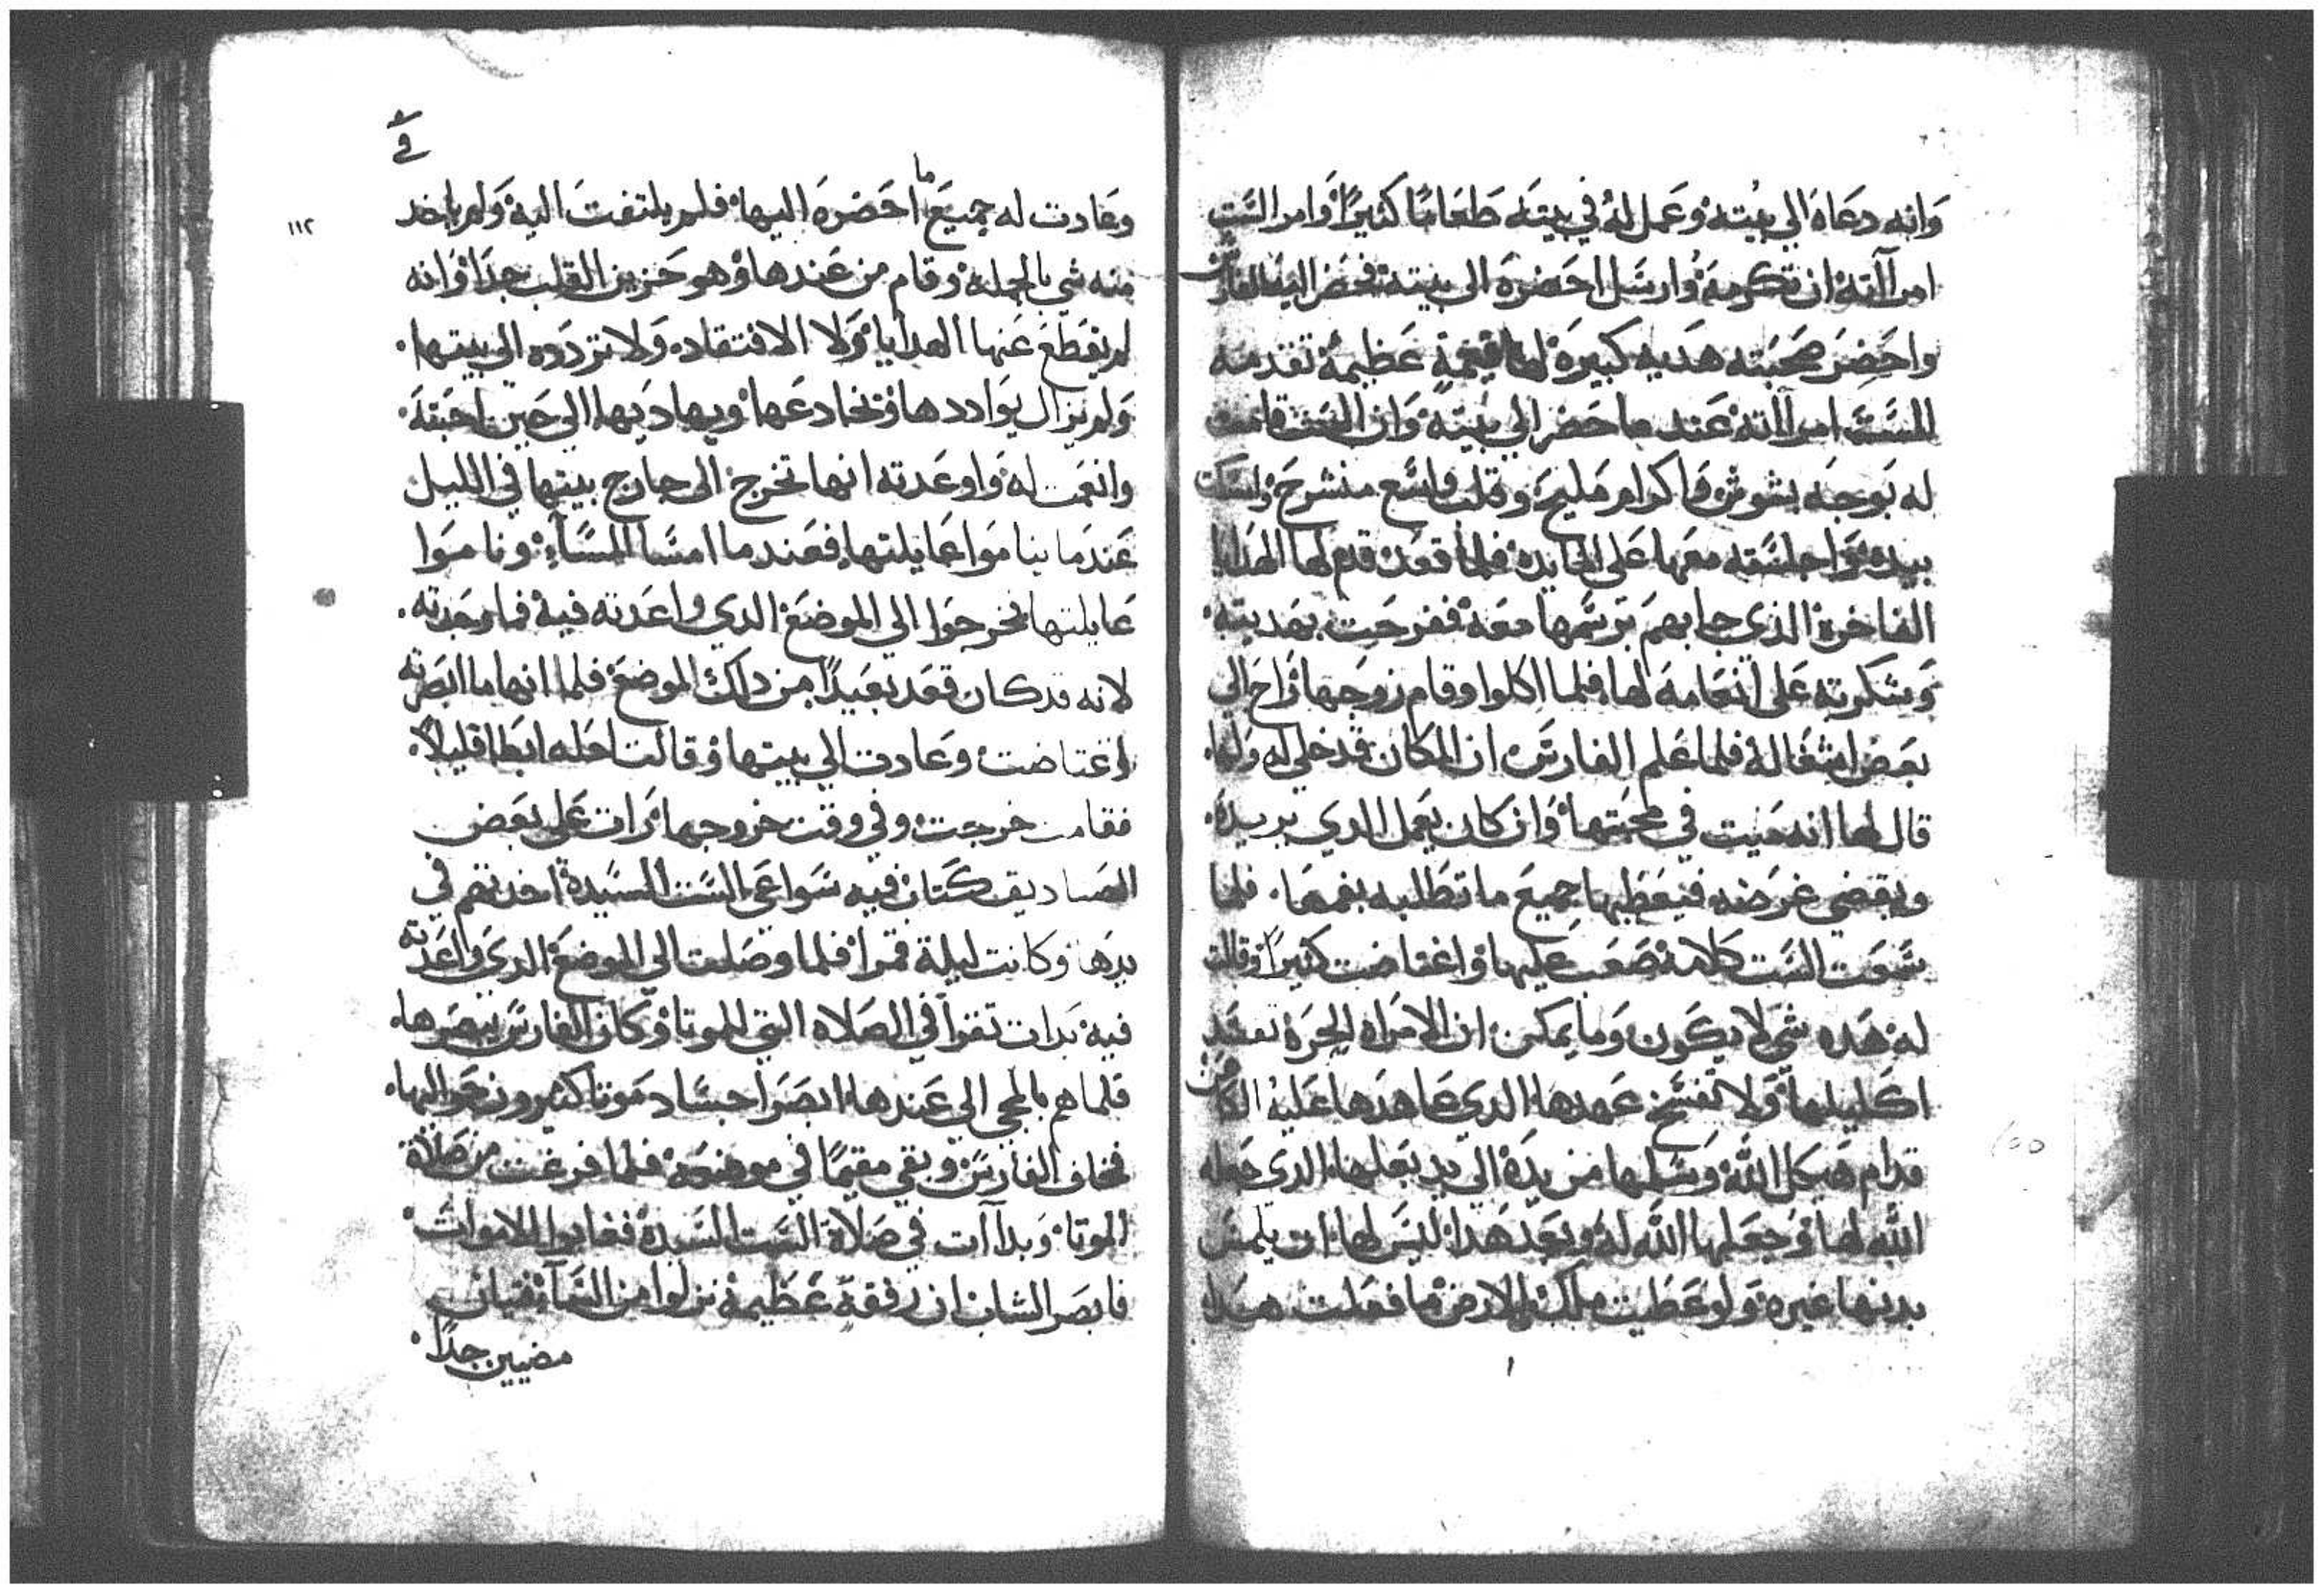 وانه دعاه الي بيته وعمل له في بيته طعامًا كثيرًا وامر الست
امرآته ان تكرمه وارسل احضره الى بيته فحضر اليه الفارس
واحضر صحبته هديه كبيره لها قيمة عظيمة تقدمه
للست امرآته عند ما حضر الي بيته وان الست قامت
له بوجه بشوش واكرام مليح وقلب واسع منشرح واسكت
بيده واجلسته معها على المايده فلما قعد قدم لها الهدايا
الفاخرة الذي جابهم برسمها معه ففرحت بهديته
وشكرته على انعامه لها فلما اكلوا وقام زوجها راح الي
بعض اشغاله فلما علم الفارس ان المكان قد خلي له ولها
قال لها انه ميت في محبتها وان كان يعمل الدي يريده
ويقضي غرضه فيعطيها جميع ما تطلبه بفمها فلما
سمعت الست كلامه صعب عليها واغتاضت كثيرًا وقالت
له هده شي لا يكون وما يمكن ان الامراه الحره تفقد
اكليلها ولا تفسخ عهدها الدي عاهدها عليه الكاهن
قدام هيكل الله وسلمها من يده الي يد بعلها الدي جعله
الله لها وجعلها الله له وبعد هدا ليس لها ان يلمس
بدنها غيره ولو عطيت ملك الارض ما فعلت هدا
في
١١٢
وعادت له جميع ما احضره اليها فلم يلتفت اليه ولم ياخد
منه شي بالجمله وقام من عندها وهو حزين القلب جدًا وانه
لم يقطع عنها الهدايا ولا الافتقاد ولا تردده الي بيتها
ولم يزال يوادددها ويخادعها ويهاديها الي حين احبته
وانعمت له واوعدته انها تخرج الى خارج بيتها في الليل
عندما يناموا عايلتها فعندما امسا المسآء وناموا
عايلتها فخرجوا الي الموضع الدي واعدته فيه فما وجدته
لانه قد كان قعد بعيدًا من دلك الموضع فلما انها ما ابصرته
اغتاضت وعادت الي بيتها وقالت لعله ابطا قليلاً
فقامت خرجت وفي وقت خروجها رات علي بعض
الصناديق كتاب فيه سواعي الست السيدة اخدتهم في
يدها وكانت ليلة قمرا فلما وصلت الي الموضع الدي واعدته
فيه بدات تقرا في الصلاه التي للموتا وكان الفارس يبصرها
فلما هم بالمجي الي عندها ابصر اجساد موتا كثير ونحو اليها
فخاف الفارس وبقي مقيمًا في موضعه فلما فرغت من صلاة
الموتا وبداآت في صلاة الست السيدة فغابوا الاموات
فابصر الشاب ان رفقة عظيمة نزلوا من السمآ فتيان
مضيين جدًا